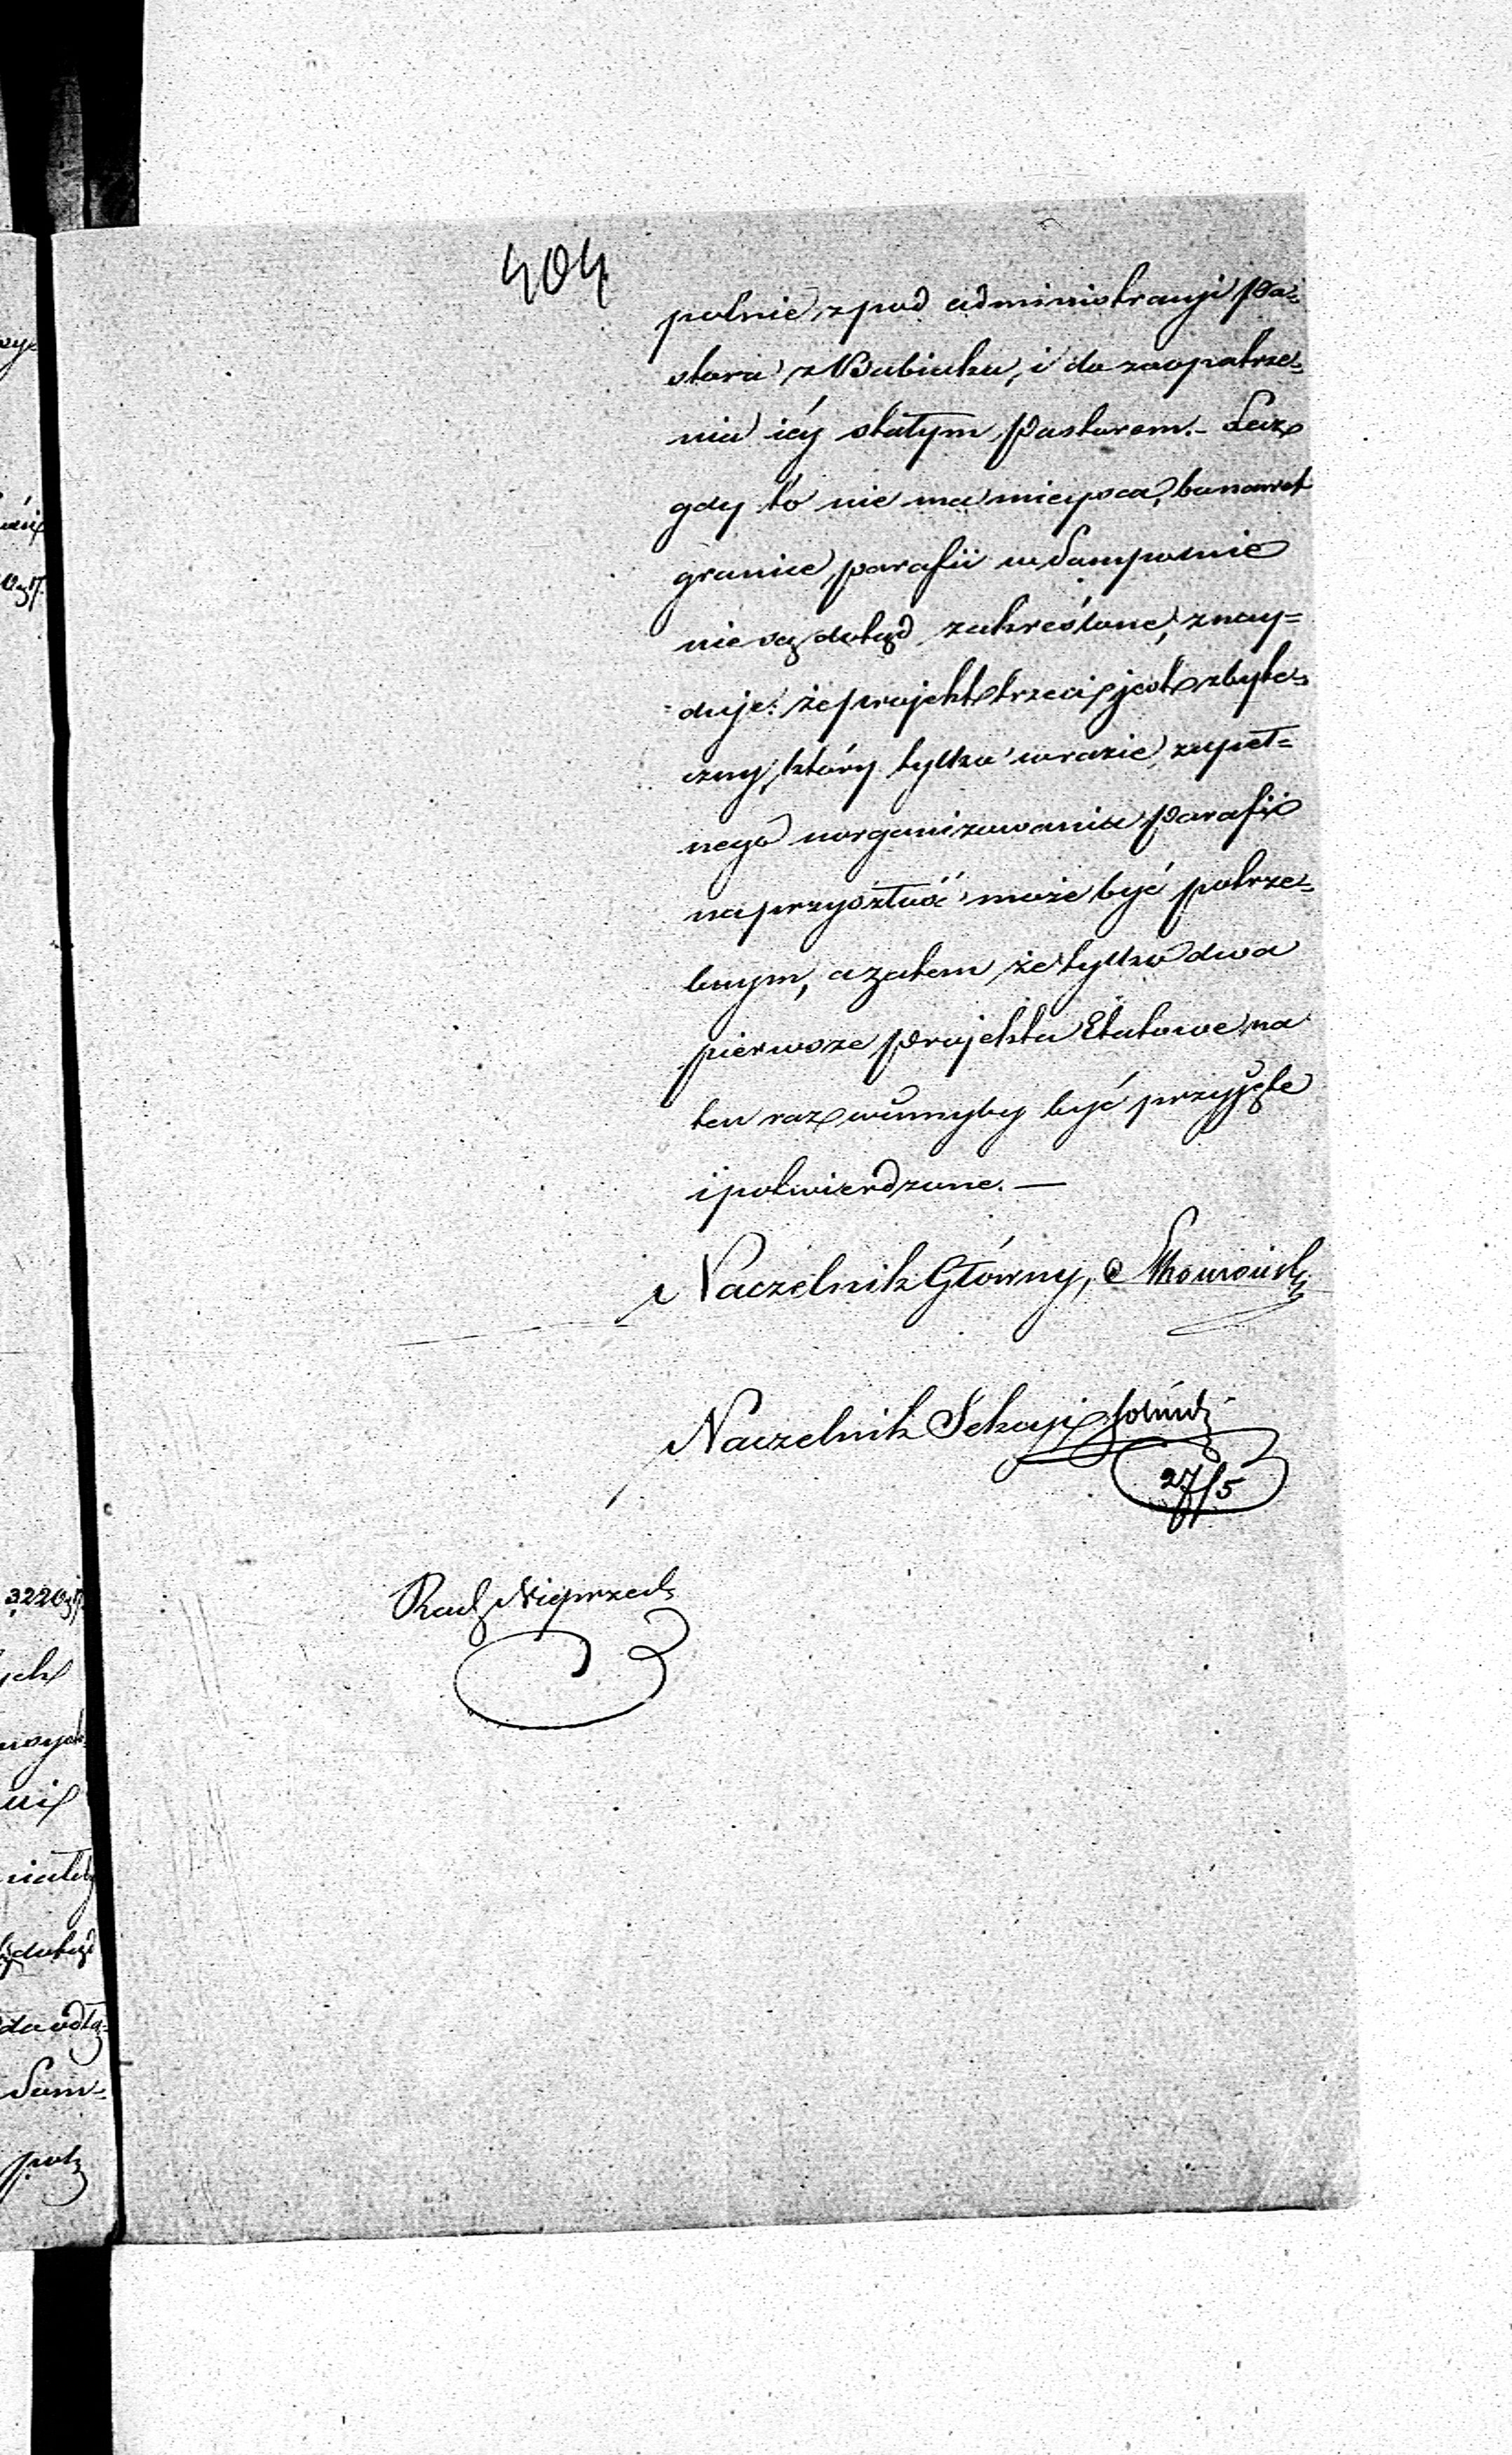 404
polnie, z pod administracyi Pa-
stora z Babiaku, i do zaopatrze-
nia iéy stałym Pastorem. - Lecz
gdy to nie ma mieysca, bo nawet
granice parafii w Sompolnie
nie są dotąd zakreślone, znay=
duje: że projekt trzeci jest zbyte-
czny, który tylko w razie zupeł=
nego uorganizowania Parafii
na przyszłość może być potrze-
bnym, a zatem że tylko dwa
pierwsze projekta Etatowe na
ten raz winnyby być przyjęte
i potwierdzone. —
Naczelnik Główny,
Naczelnik Sekcyi
27/5
Rad
3220
ych
Som=